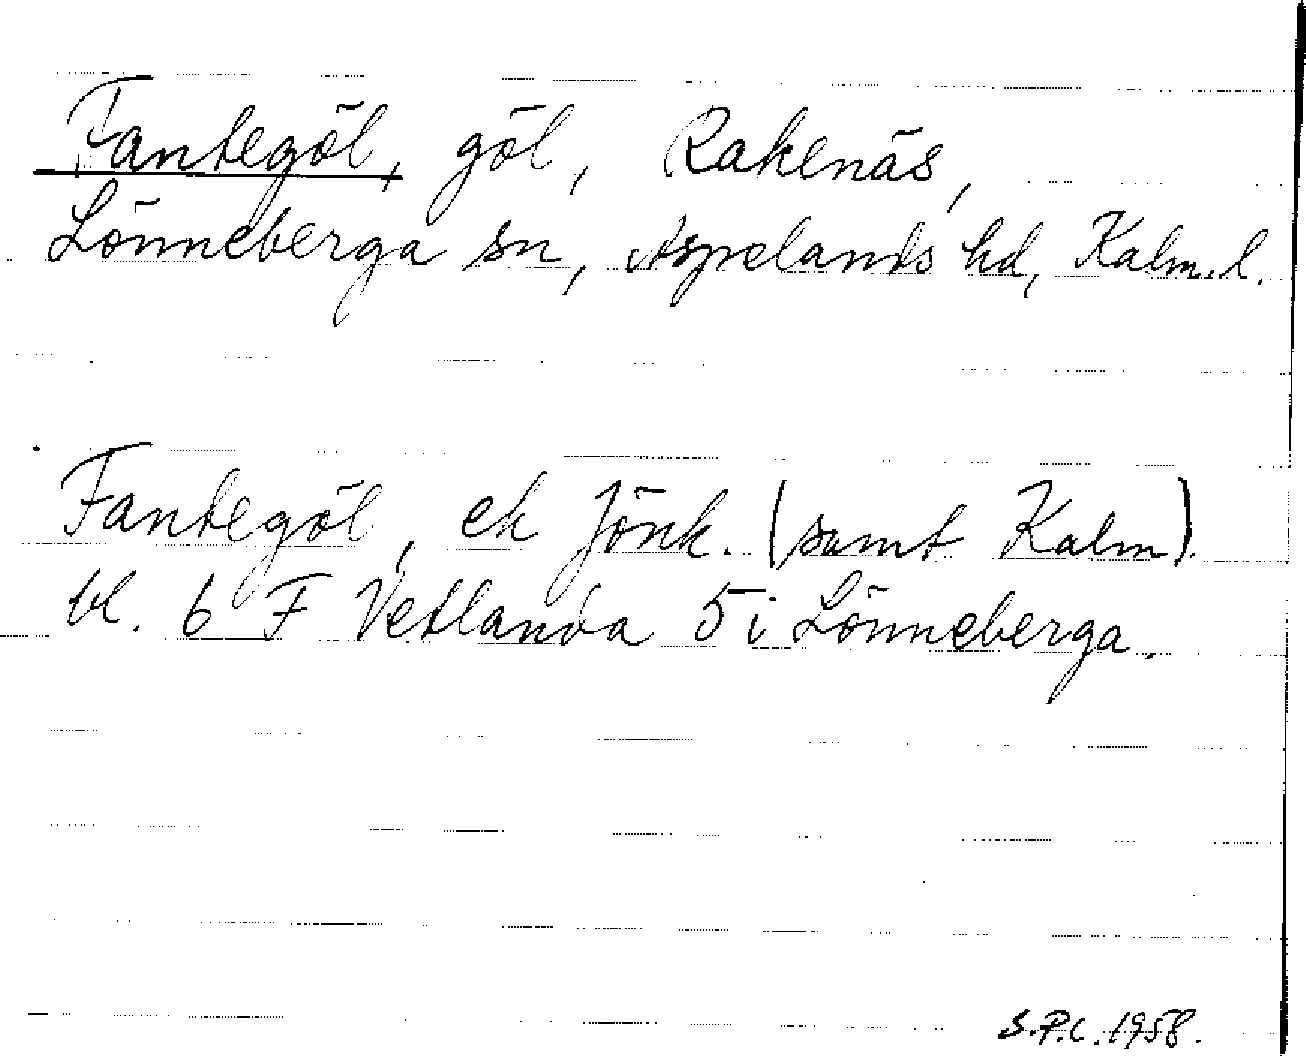 Fantegöl, göl, Rakenäs,
Lönneberga sn, Aspelands hd, Kalm. l.
Fantegöl, ek Jönk. (samt Kalm).
bl. 6 F Vetlanda 5 i Lönneberga.
S.P.C. 1958.